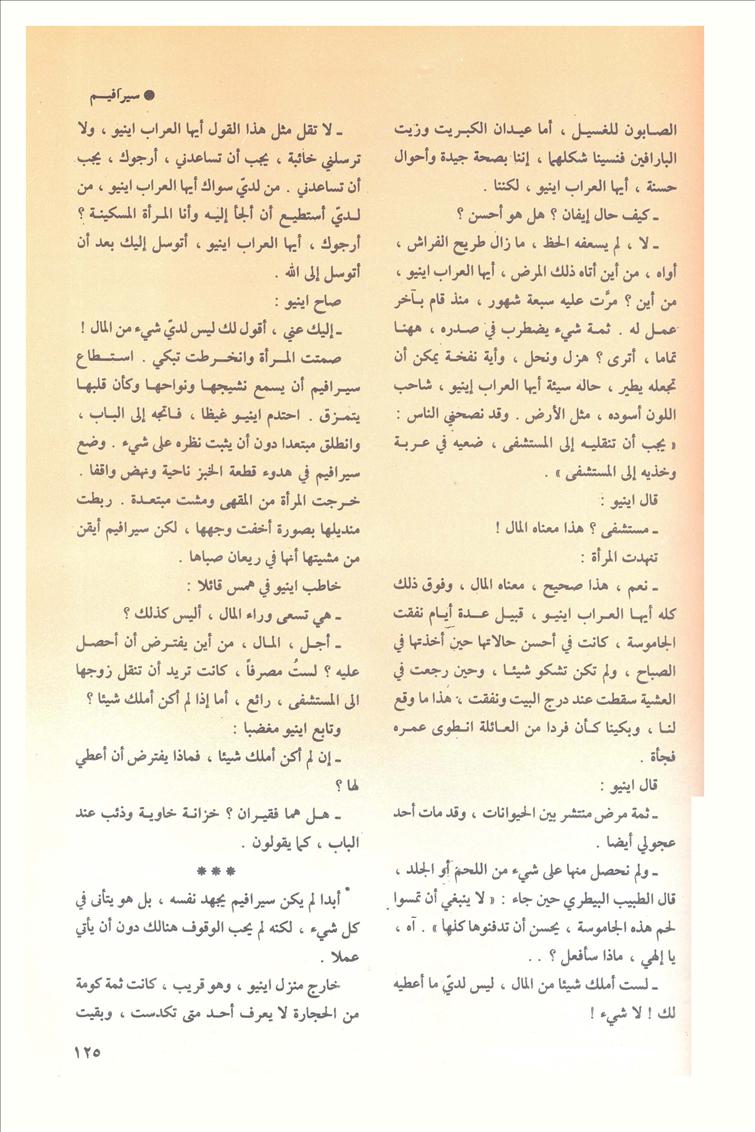 ● سيرافيم
الصابون للغسيل ، أما عيدان الكبريت وزيت
البارافين فنسينا شكلهما ، إننا بصحة جيدة وأحوال
حسنة ، أيها العراب اينيو ، لكننا .
ـ كيف حال إيفان ؟ هل هو أحسن ؟
ـ لا ، لم يسعفه الحظ ، ما زال طريح الفراش ،
أواه ، من أين أتاه ذلك المرض ، أيها العراب اينيو ،
من أين ؟ مرَّت عليه سبعة شهور ، منذ قام بآخر
عمل له . ثمة شيء يضطرب في صدره ، ههنا
تماما ، أترى ؟ هزل ونحل ، وأية نفخة يمكن أن
تجعله يطير ، حاله سيئة أيها العراب إينيو ، شاحب
اللون أسوده ، مثل الأرض . وقد نصحني الناس :
« يجب أن تنقليه إلى المستشفى ، ضعيه في عربة
وخذيه إلى المستشفى » .
قال اينيو :
ـ مستشفى ؟ هذا معناه المال !
تنهدت المرأة :
ـ نعم ، هذا صحيح ، معناه المال ، وفوق ذلك
كله أيها العراب اينيو ، قبيل عدة أيام نفقت
الجاموسة ، كانت في أحسن حالاتها حين أخذتها في
الصباح ، ولم تكن تشكو شيئا ، وحين رجعت في
العشية سقطت عند درج البيت ونفقت ، هذا ما وقع
لنا ، وبكينا كأن فردا من العائلة انطوى عمره
فجأة .
قال اينيو :
ـ ثمة مرض منتشر بين الحيوانات ، وقد مات أحد
عجولي أيضا .
ـ ولم نحصل منها على شيء من اللحم أو الجلد ،
قال الطبيب البيطري حين جاء : « لا ينبغي أن تمسوا
لحم هذه الجاموسة ، يحسن أن تدفنوها كلها » . آه ،
يا إلهي ، ماذا سأفعل ؟ . .
ـ لست أملك شيئا من المال ، ليس لديّ ما أعطيه
لك ! لا شيء !
ـ لا تقل مثل هذا القول أيها العراب اينيو ، ولا
ترسلني خائبة ، يجب أن تساعدني ، أرجوك ، يجب
أن تساعدني . من لديّ سواك أيها العراب اينيو ، من
لديّ أستطيع أن ألجأ إليه وأنا المرأة المسكينة ؟
أرجوك ، أيها العراب اينيو ، أتوسل إليك بعد أن
أتوسل إلى الله .
صاح اينيو :
ـ إليك عني ، أقول لك ليس لديّ شيء من المال !
صمتت المرأة وانخرطت تبكي . استطاع
سيرافيم أن يسمع نشيجها ونواحها وكأن قلبها
يتمزق . احتدم اينيو غيظا ، فاتجه إلى الباب ،
وانطلق مبتعدا دون أن يثبت نظره على شيء . وضع
سيرافيم في هدوء قطعة الخبز ناحية ونهض واقفا .
خرجت المرأة من المقهى ومشت مبتعدة . ربطت
منديلها بصورة أخفت وجهها ، لكن سيرافيم أيقن
من مشيتها أنها في ريعان صباها .
خاطب اينيو في همس قائلا :
ـ هي تسعى وراء المال ، أليس كذلك ؟
ـ أجل ، المال ، من أين يفترض أن أحصل
عليه ؟ لستُ مصرفاً ، كانت تريد أن تنقل زوجها
الى المستشفى ، رائع ، أما إذا لم أكن أملك شيئا ؟
وتابع اينيو مغضبا :
ـ إن لم أكن أملك شيئا ، فماذا يفترض أن أعطي
لها ؟
ـ هل هما فقيران ؟ خزانة خاوية وذئب عند
الباب ، كما يقولون .
***
أبدا لم يكن سيرافيم يجهد نفسه ، بل هو يتأنى في
كل شيء ، لكنه لم يحب الوقوف هنالك دون أن يأتي
عملا .
خارج منزل اينيو ، وهو قريب ، كانت ثمة كومة
من الحجارة لا يعرف أحد متى تكدست ، وبقيت
١٢٥